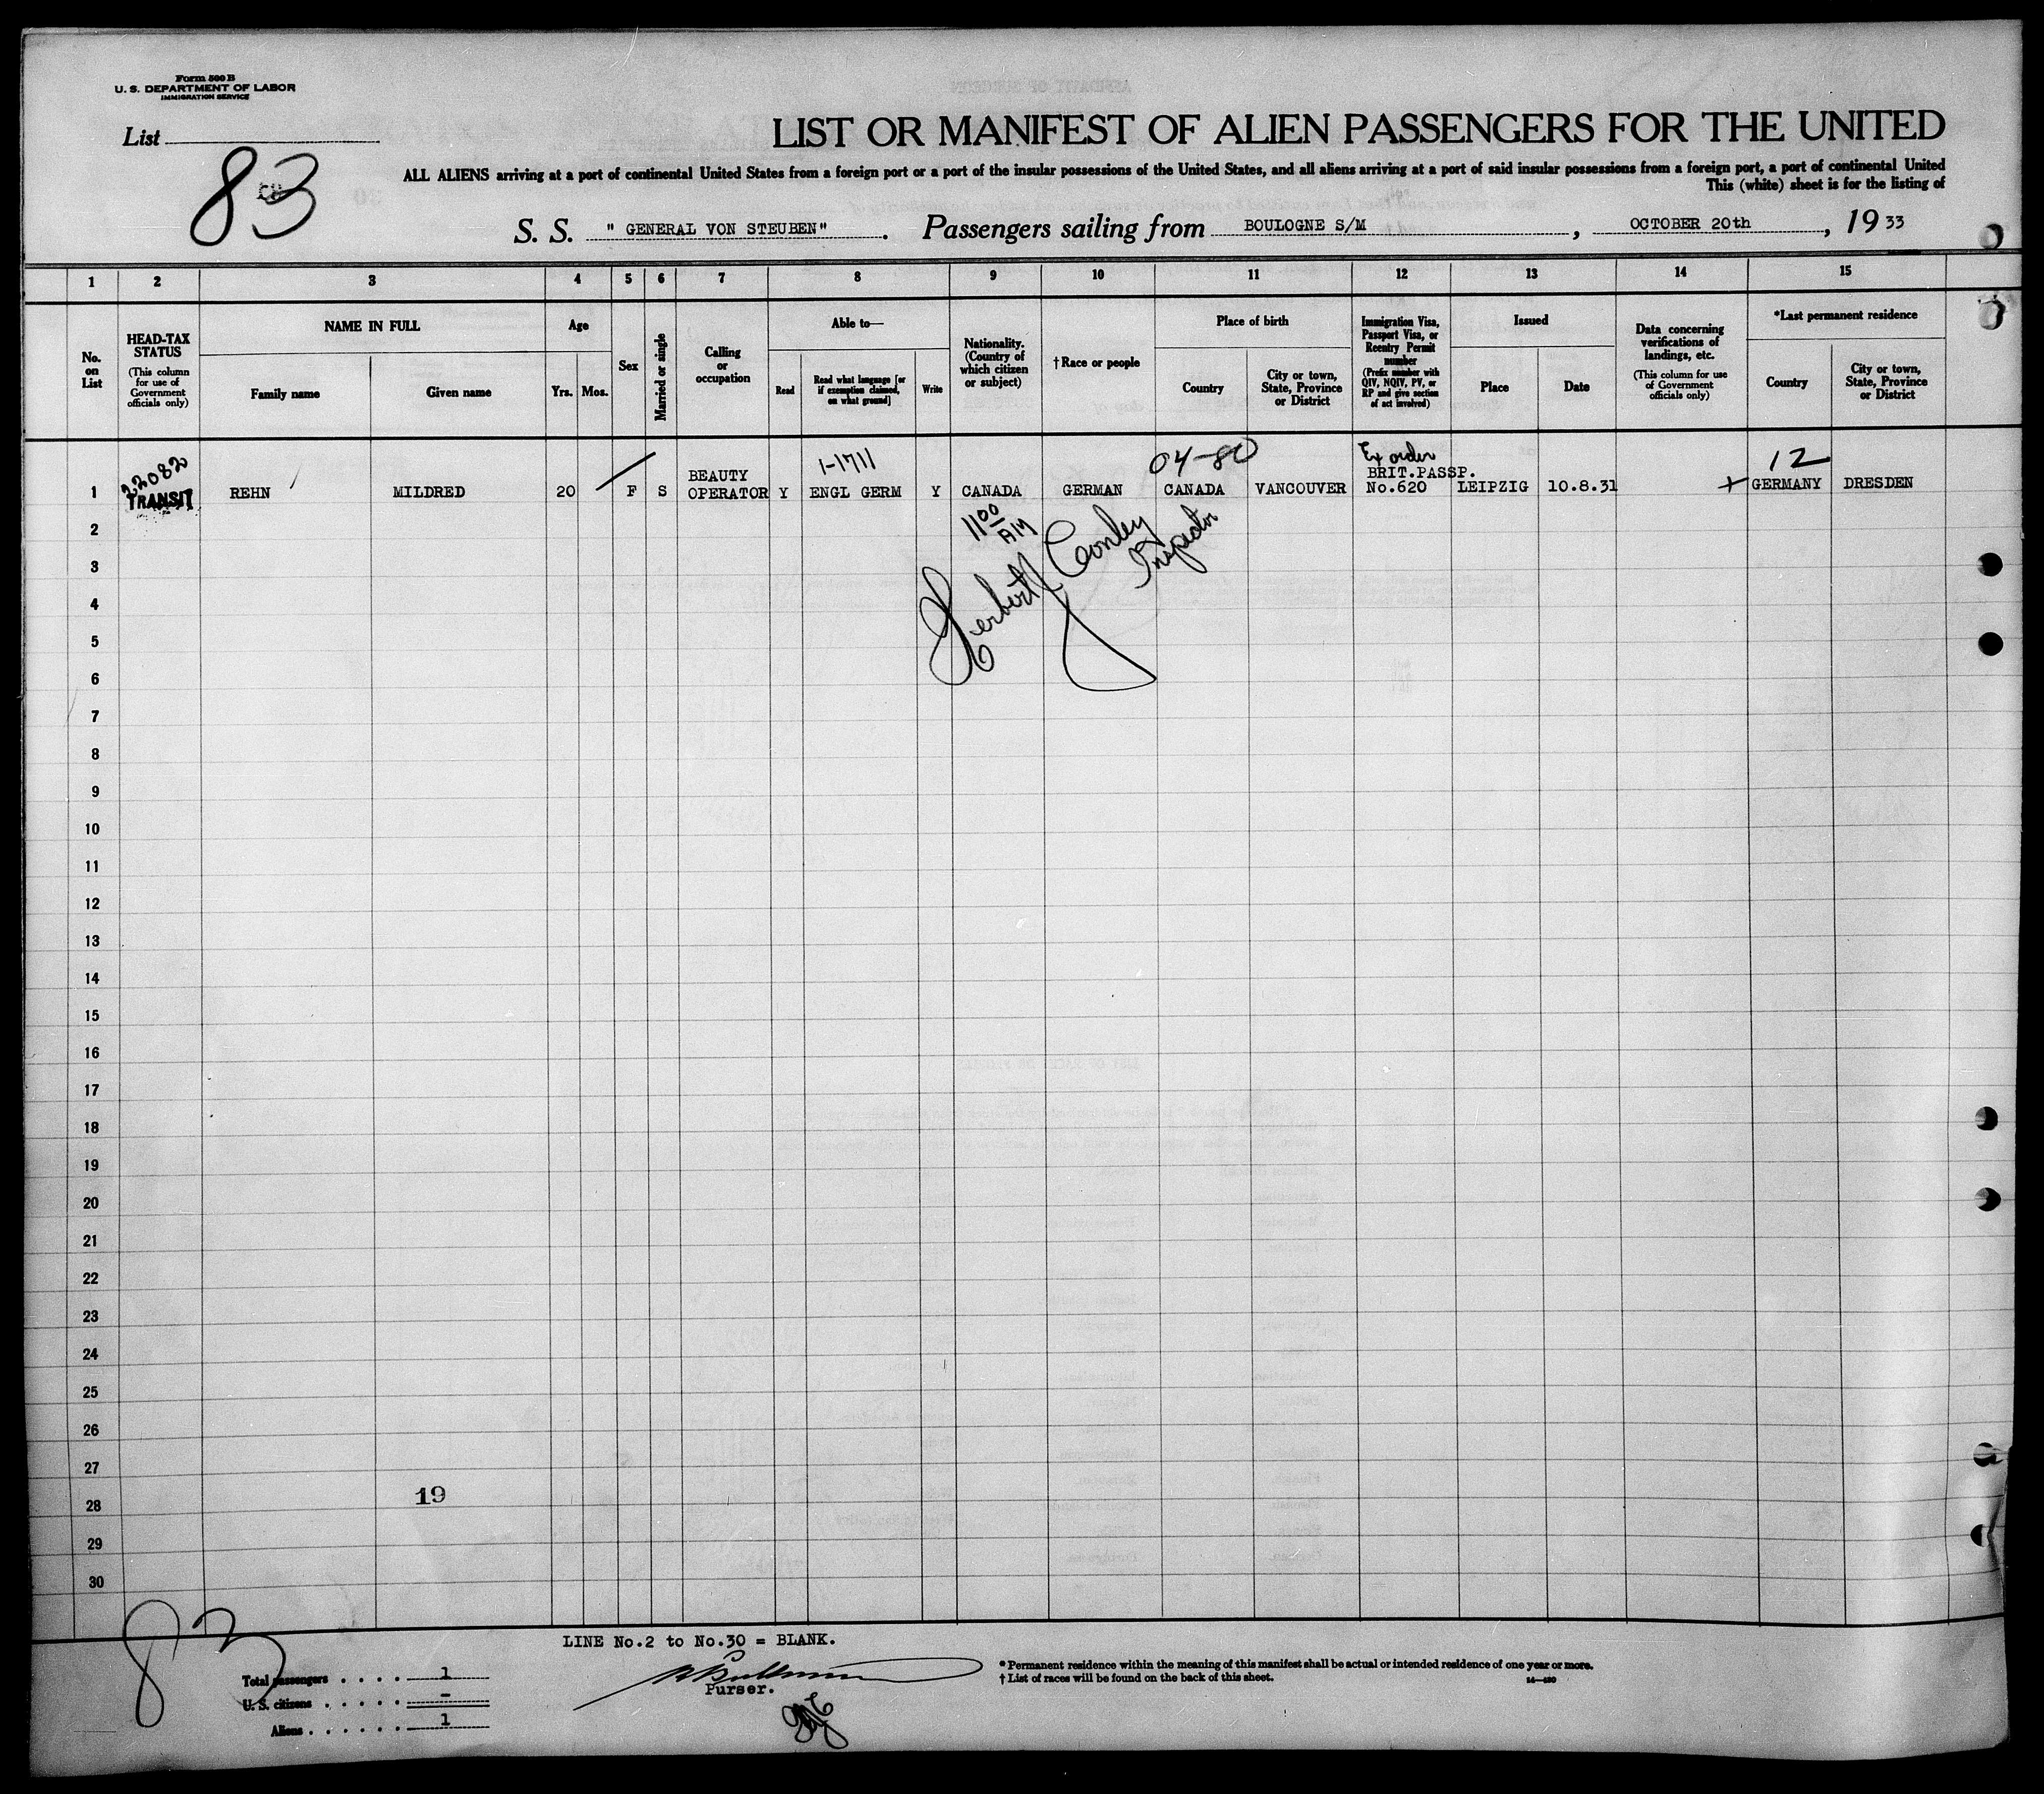 Form 500 B
U. S. DEPARTMENT OF LABOR
IMMIGRATION SERVICE
List
83
LIST OR MANIFEST OF ALIEN PASSENGERS FOR THE UNITED
ALL ALIENS arriving at a port of continental United States from a foreign port or a port of the insular possessions of the United States, and all aliens arriving at a port of said insular possessions from a foreign port, a port of continental United
This (white) sheet is for the listing of
S. S. " GENERAL VON STEUBEN" . Passengers sailing from BOULOGNE S/M , OCTOBER 20th , 19 33
1 2 3 4 5 6 7 8 9 10 11 12 13 14 15
No. on List
HEAD-TAX STATUS
(This column for use of Government officials only)
NAME IN FULL
Family name
Given name
Age
Yrs. Mos.
Sex
Married or single
Calling or occupation
Able to—
Read
Read what language [or if exemption claimed, on what ground]
Write
Nationality. (Country of which citizen or subject)
† Race or people
Place of birth
Country
City or town, State, Province or District
Immigration Visa, Passport Visa, or Reentry Permit number
(Prefix number with QIV, NQIV, PV, or RP and give section of act involved)
Issued
Place
Date
Data concerning verifications of landings, etc.
(This column for use of Government officials only)
*Last permanent residence
Country
City or town, State, Province or District
22082 1-1711 04-80 Ex order 12
BEAUTY BRIT.PASSP.
1 TRANSIT REHN MILDRED 20 F S OPERATOR Y ENGL GERM Y CANADA GERMAN CANADA VANCOUVER No.620 LEIPZIG 10.8.31 GERMANY DRESDEN
11 00 AM
Herbert J Conley
Inspector
2
3
4
5
6
7
8
9
10
11
12
13
14
15
16
17
18
19
20
21
22
23
24
25
26
27
28
19
29
30
83
LINE No.2 to No.30 = BLANK.
Total passengers . . . . 1
U. S. citizens . . . . . –
Aliens . . . . . . 1
Purser.
* Permanent residence within the meaning of this manifest shall be actual or intended residence of one year or more.
† List of races will be found on the back of this sheet.
14—430